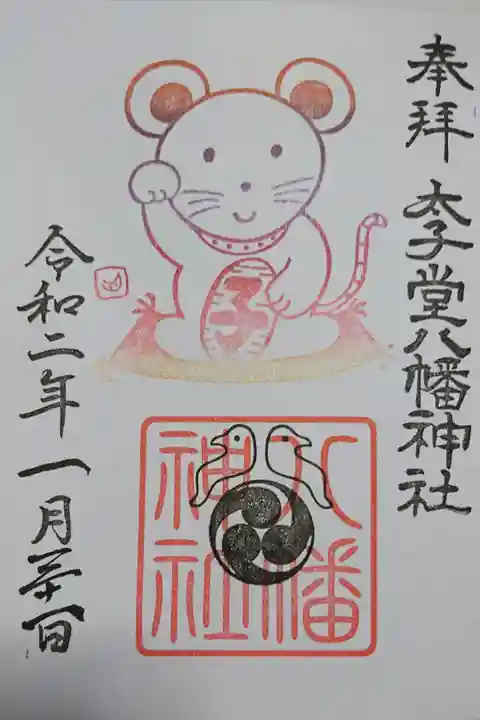 奉拝
太子堂八幡神社
子
八幡
神社
令和二年一月三十一日